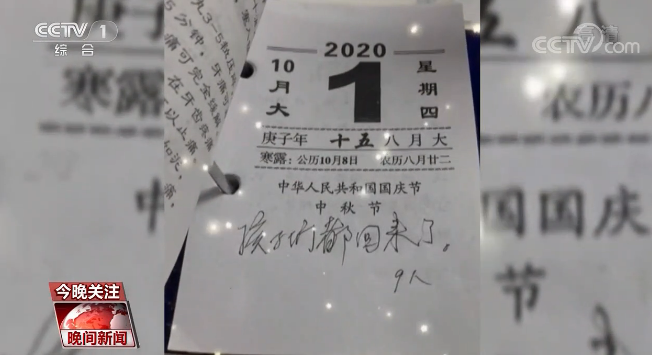 CCTV 1
综合
CCTV.com
2020
10月大
1
星期四
庚子年 十五 八月大
寒露：公历10月8日 农历八月廿二
中华人民共和国国庆节
中秋节
孩子们都回来了。
9人
寒露
农历八
国国庆
节
今晚关注
晚间新闻